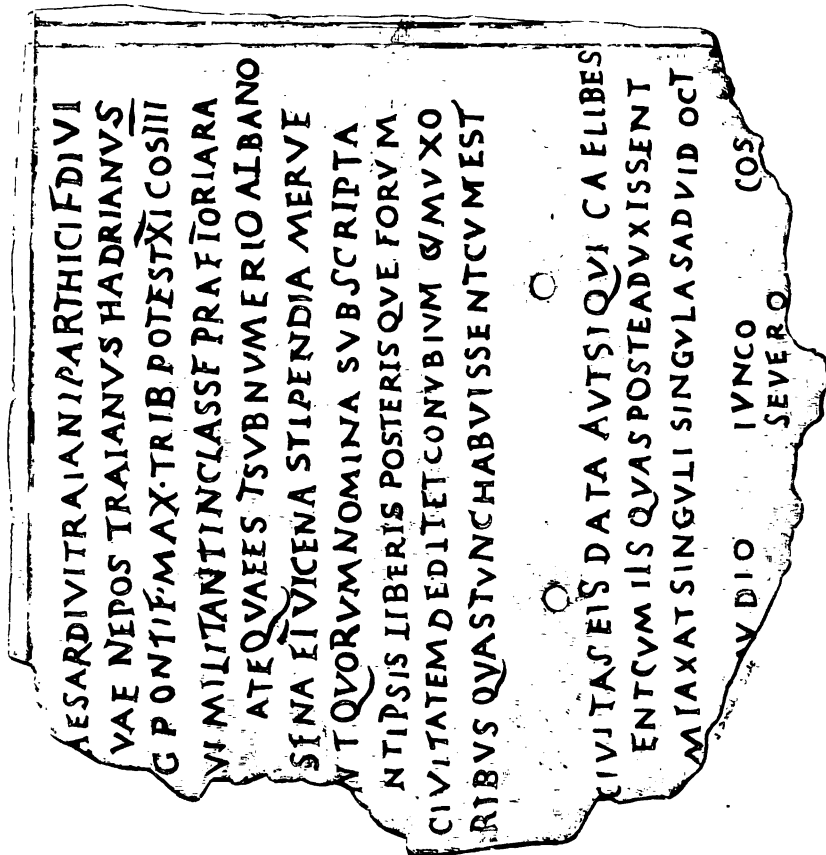 AESARDIVITRAIANIPARTHICIFDIVI
VAE NEPOS TRAIANVS HADRIANVS
G PONTIF·MAX·TRIB POTEST XI COSIII
VI MILITANTINCLASSE PRAETORIARA
ATEQVAEES TSVBNVMERIO ALBANO
SENA EI VICENA STIPENDIA MERVE
NT QVORVMNOMINA SVBSCRIPTA
NTIPSIS LIBERIS POSTERISQVE FORVM
CIVITATEMDEDITET CONVBIVM CVMVXO
RIBVS QVASTVNCHABVISSENTCVMEST
CIVITASEIS DATA AVTSIQVI CAELIBES
ENTCVM IIS QVASPOSTEADVXISSENT
MIAXATSINGVLI SINGVLASADVID OCT
VDIO IVNCO COS
SEVERO